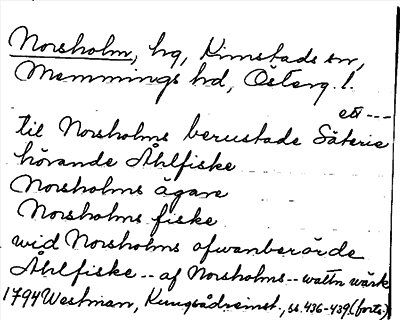 Norsholm, hg, Kimstads sn,
Memmings hd, Österg. l.
ett ---
til Norsholms berustade Säterie
hörande Åhlfiske
Norsholms ägare
Norsholms fiske
wid Norsholms ofwanberörde
Åhlfiske -- af Norsholms -- wattn wärk
1794 Westman, ss. 436-439 (forts.)